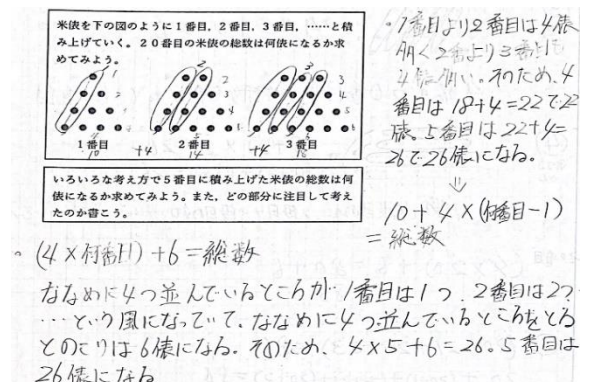 米俵を下の図のように1番目，2番目，3番目，……と積
み上げていく。20番目の米俵の総数は何俵になるか求
めてみよう。
1 2 3 4
2 2 3 4 5
3 3 4 5 6
1番目 2番目 3番目
10 +4 14 +4 18
いろいろな考え方で5番目に積み上げた米俵の総数は何
俵になるか求めてみよう。また，どの部分に注目して考え
たのか書こう。
・1番目より2番目は4俵
多く2番より3番目も
4俵多い。そのため、4
番目は18+4=22で22
俵。5番目は22+4=
26で26俵になる。
⇓
10+4×(何番目-1)
=総数
・(4×何番目)+6=総数
ななめに4つ並んでいるところが1番目は1つ、2番目は2つ
…という風になっていて、ななめに4つ並んでいるところをとる
とのこりは6俵になる。そのため、4×5+6=26。5番目は
26俵になる